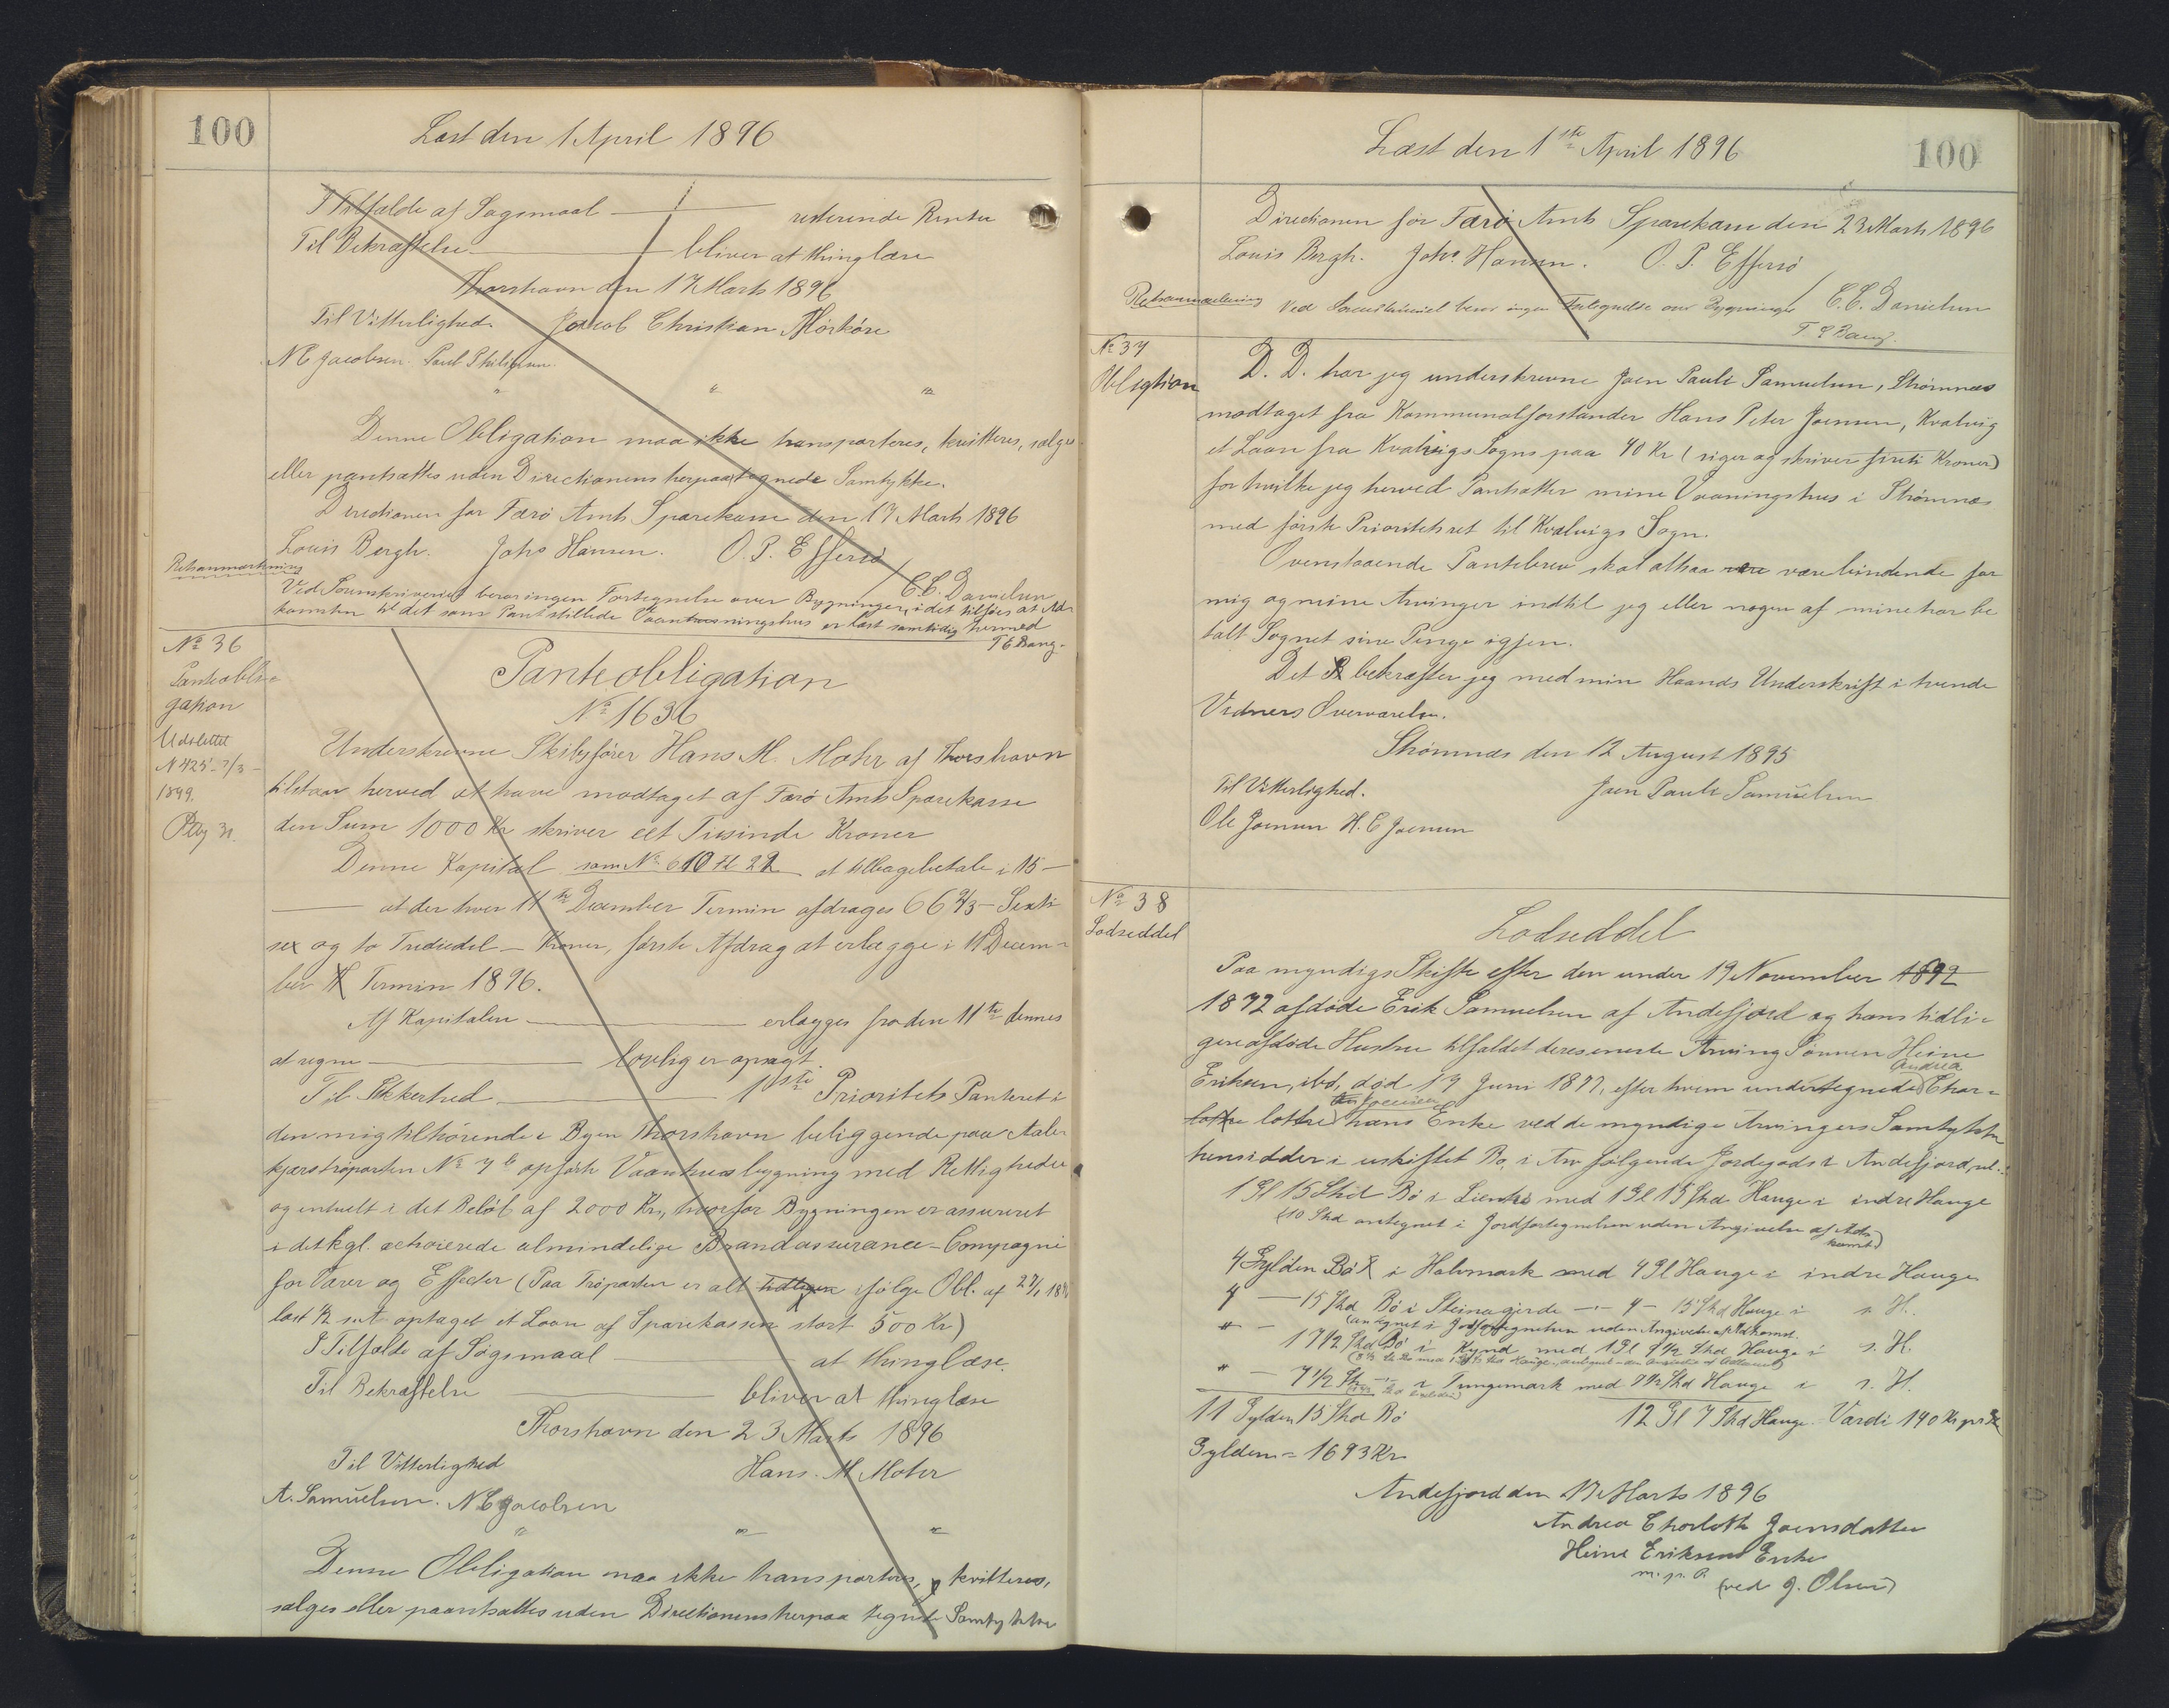 100
Læst den 1 April 1896
I Tilfælde af Sagsmaal — resterende Renter
Til Bekræftelse — bliver at thinglæse
Thorshavn den 17 Marts 1896
Til Vitterlighed Jacob Christian Mörköre
N C Jacobsen. Paul Philipsen
" " "
Denne Obligation maa ikke transporteres, kvitteres, sælges
eller pantsættes uden Directionens herpaa tegnede Samtykke.
Directionen for Færö Amts Sparekasse den 17 Marts 1896
Louis Bergh. Johs Hansen. O. P. Effersö / C.C. Danielsen
Retsanmærkning
Ved Sorenskriveriet beror ingen Fortegnelse over Bygninger, idet tilföies at Ad-
komsten til det som Pant stillede Vaaningshus er læst samtidig hermed
T C Bang.
No 36
Panteobli-
gation
Udslettet
N 425 - 7/3 -
1899.
Panteobligation
No 1636
Underskrevne Skibsförer Hans M. Mohr af Thorshavn
tilstaar herved at have modtaget af Færö Amts Sparekasse
den Sum 1000 Kr skriver eet Tusinde Kroner
Denne Kapital som No 610 H 22 at tilbagebetale i 15 —
— at der hver 11te December Termin afdrages 66 2/3 — Sexti
sex og to Trediedel — Kroner, förste Afdrag at erlægge i 11 Decem-
ber Termin 1896.
Af Kapitalen — erlægges fra den 11te dennes
at regne — lovlig er opsagt
Til Sikkerhed — 1ste Prioritets Panteret i
den mig tilhörende i Byen Thorshavn beliggende paa Aale-
kjærströparten No 7 b opförte Vaanhusbygning med Rettigheder
og entuelt i det Belöb af 2000 Kr, hvorfor Bygningen er assureret
i det kgl. octroierede almindelige Brandassurance-Compagni
for Varer og Effecter (Paa Tröparten er alt tidligere ifölge Obl. af 27/1 18
læst optaget et Laan af Sparekassen stort 500 Kr)
I Tilfælde af Sögsmaal — at thinglæse.
Til Bekræftelse — bliver at thinglæse
Thorshavn den 23 Marts 1896
Til Vitterlighed Hans. M Mohr
A. Samuelsen. N C Jacobsen
" " "
Denne Obligation maa ikke transporteres, kvitteres,
sælges eller paantsættes uden Directionens herpaa tegnede Samtykke
100
Læst den 1ste April 1896
Directionen for Færö Amts Sparekasse den 23 Marts 1896
Louis Bergh. Johs. Hansen. O. P. Effersö / C. C. Danielsen
Retsanmærkning Ved Sorenskriveriet beror ingen Fortegnelse over Bygninger
T C Bang.
No 37
Obligtion
D. D. har jeg underskrevne Joen Pauli Samuelsen, Strömnæs
modtaget fra Kommunalforstander Hans Peter Joensen, Kvalvig
et Laan fra Kvalvigs Sogns paa 40 Kr (siger og skriver fireti Kroner)
for hvilke jeg herved Pantsætter mine Vaaningshus i Strömnæs
med förste Prioritetsret til Kvalvigs Sogn.
Ovenstaaende Pantebrev skal altsaa være være bindende for
mig og mine Arvinger indtil jeg eller nogen af mine har be
talt Sognet sine Penge igjen.
Det bekræfter jeg med min Haands Underskrift i tvende
Vidners Overværelse.
Strömnæs den 12 August 1895
Til Vitterlighed. Joen Pauli Samuelsen
Ole Joensen H. C Joensen
No 38
Lodseddel
Lodseddel
Paa myndigs Skifte efter den under 19 November 1892
1872 afdöde Erik Samuelsen af Andefjord og hans tidli-
gere afdöde Hustru tilfaldt deres eneste Arving Sönnen Heine
Eriksen, ibd, död 17 Juni 1877, efter hvem undertegnede Andrea Char-
lotte lotte Joensen hans Enke ved de myndige Arvingers Samtykke
hensidder i uskiftet Bo, i Arv fölgende Jordegods i Andefjord, nl.:
1 Gl 15 Skd Bö i Lienhs med 1 Gl 15 Skd Hauge i indre Hauge
(10 Skd antegnet i Jordfortegnelsen uden Angivelse af Adkomst)
4 Gylden Bö i Halvmark med 4 Gl Hauge i indre Hauge
4 — 15 Skd Bö i Steinagirde — 4 — 15 Skd Hauge i s. H.
(antegnet i Jordfortegnelsen uden Angivelse af Adkomst.
" — 17 1/2 Skd Bö i Kynd med 1 Gl 9 1/2 Skd Hauge i s. H.
" — 7 1/2 Sk — i Tungemark med 7 1/2 Skd Hauge i s. H.
11 Gylden 15 Skd Bö 12 Gl 7 Skd Hauge. Værdi 140 Kr pr
Gylden = 1693 Kr
Andefjord den 17 Marts 1896
Andrea Charlotte Joensdatter
Heine Eriksens Enke
m. p. P.
(ved J. Olsen)